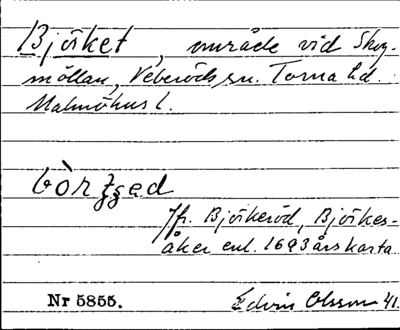 Björket, område vid Skog-
möllan, Veberöds sn. Torna hd.
Malmöhus l.
bòrʒed
Jfr. Björkeröd, Björkes-
åker enl. 1693 års karta
Nr 5855. Edvin Olsson 41.